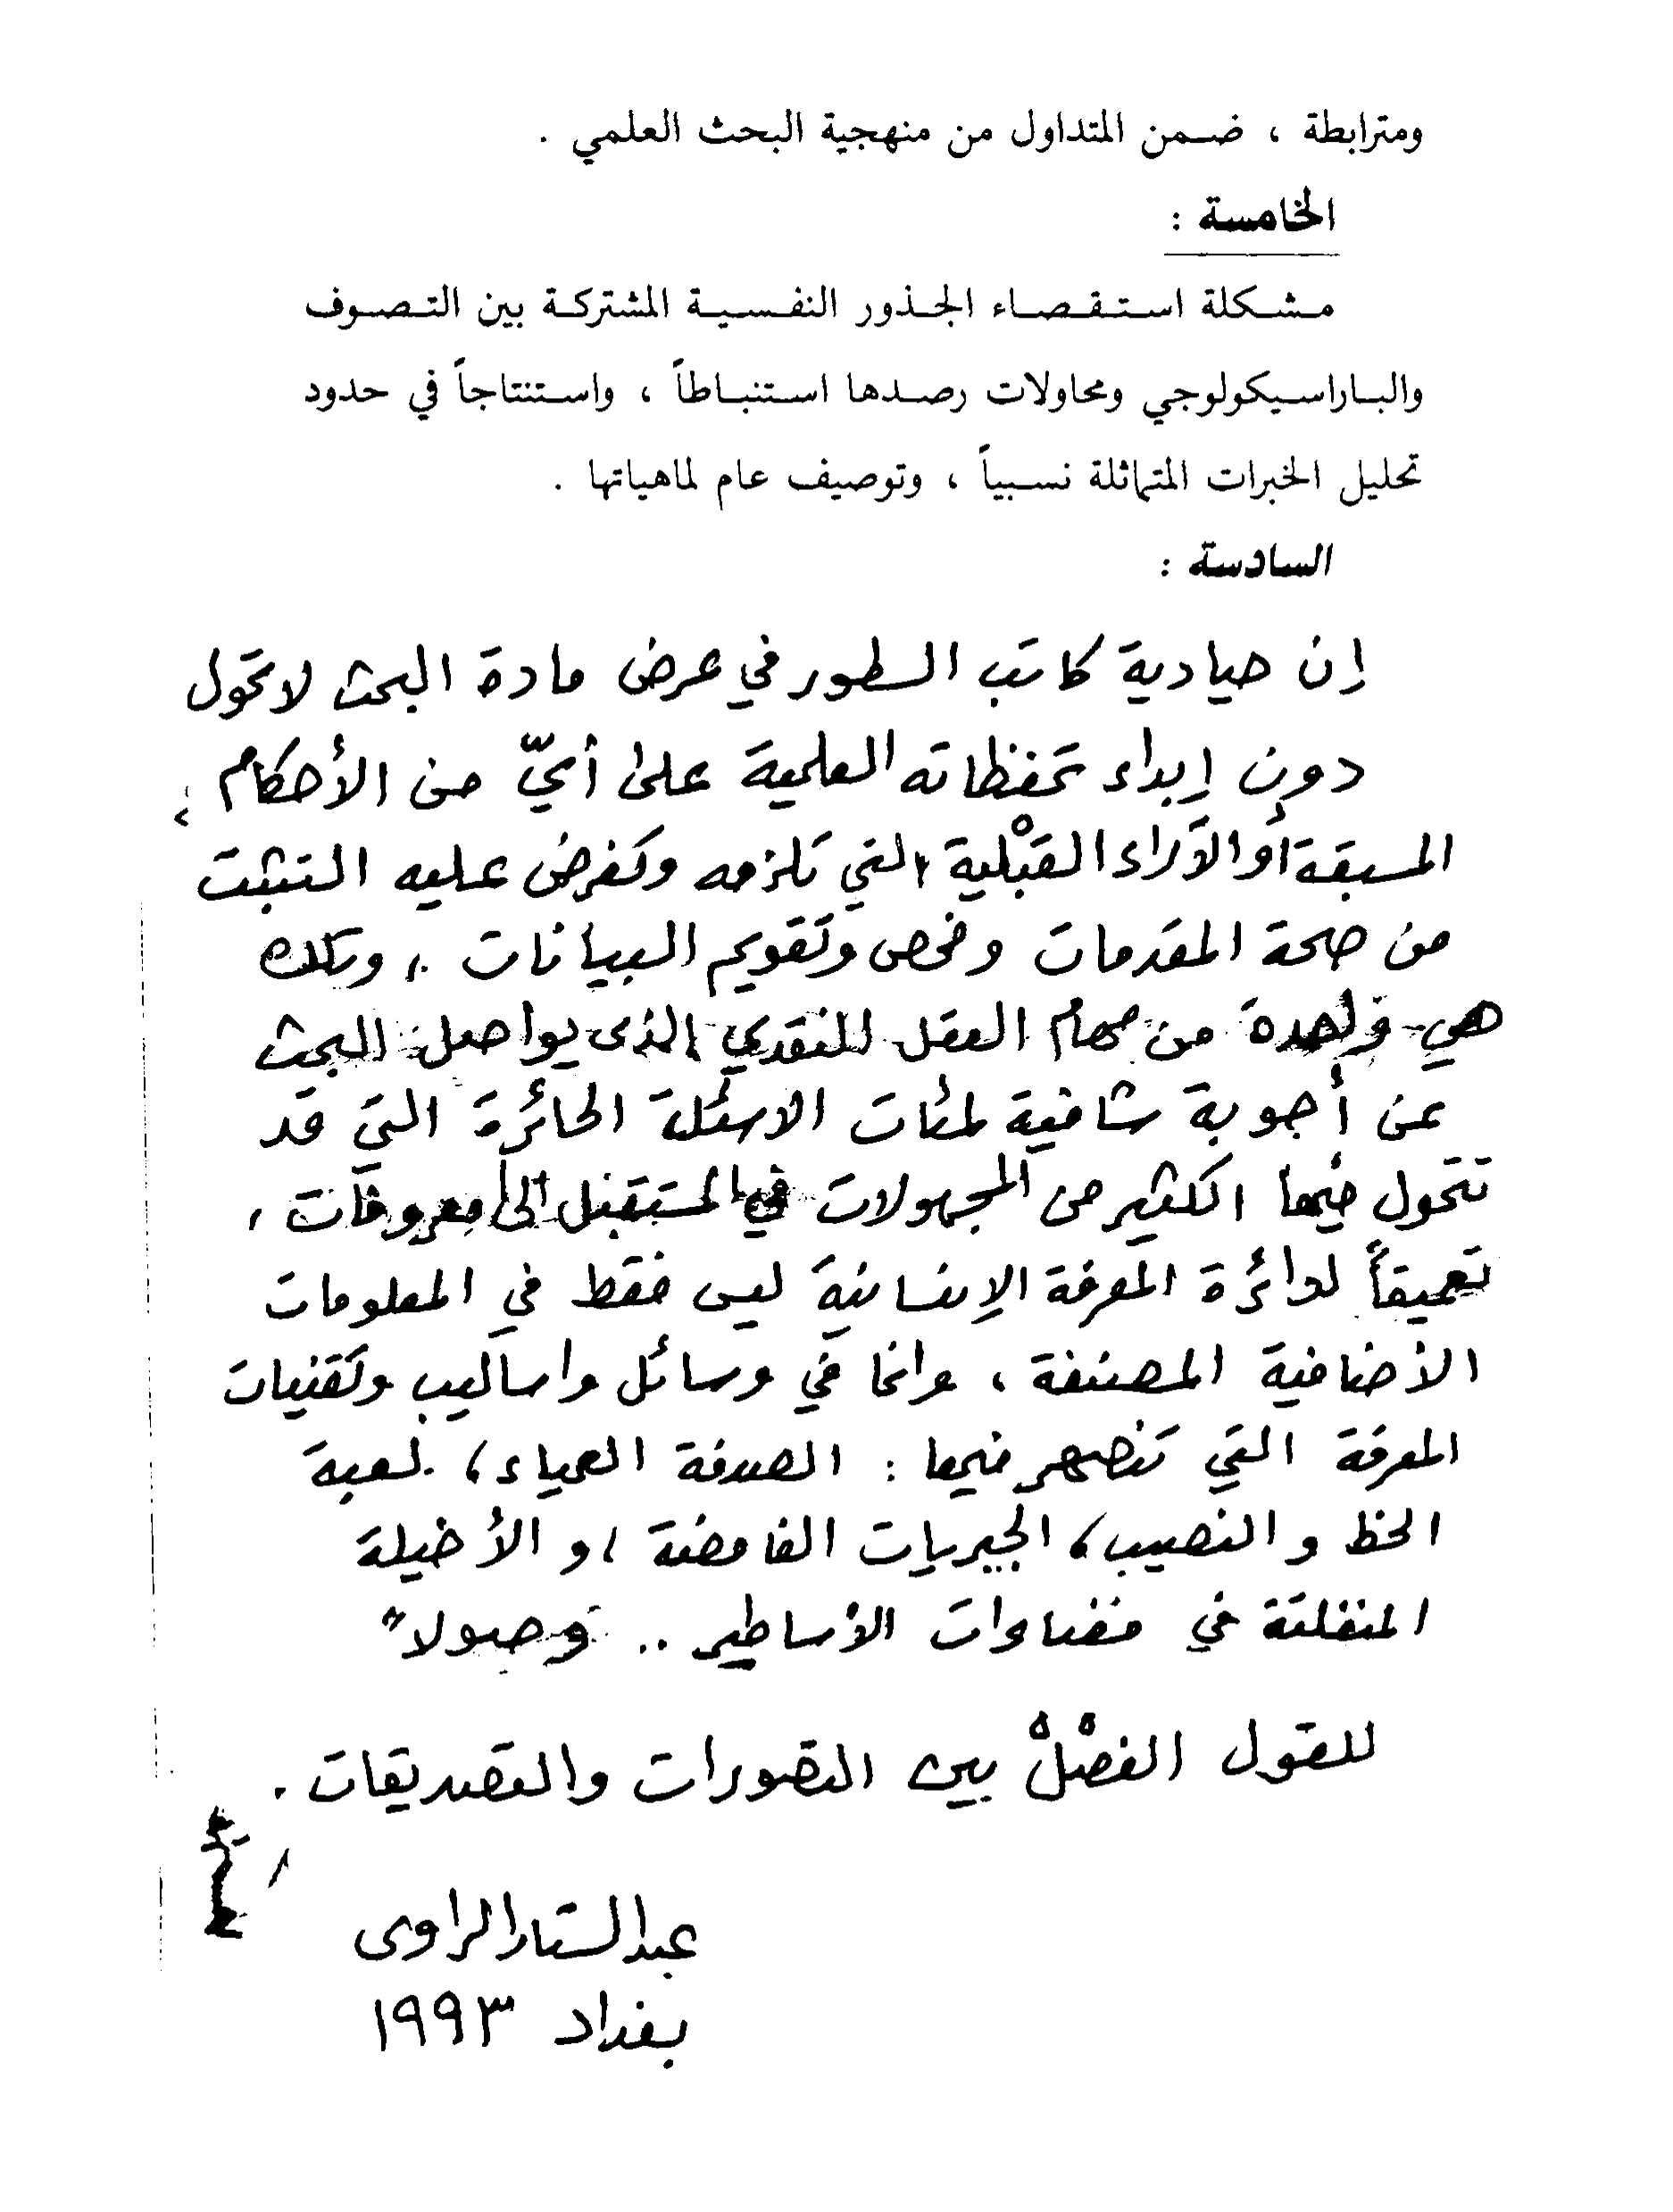 ومترابطة ، ضمن المتداول من منهجية البحث العلمي .
الخامسة :
مشكلة استقصاء الجذور النفسية المشتركة بين التصوف
والباراسيكولوجي ومحاولات رصدها استنباطاً ، واستنتاجاً في حدود
تحليل الخبرات المتماثلة نسبياً ، وتوصيف عام لماهياتها .
السادسة :
إن حيادية كاتب السطور في عرض مادة البحث لا تحول
دون إبداء تحفظاته العلمية على أيّ من الأحكام
المسبقة أو الآراء القبْلية التي تلزمه وتفرض عليه التثبت
من صحة المقدمات وفحص وتقويم البيانات ، وتلك
هي واحدة من مهام العقل النقدي الذى يواصل البحث
عن أجوبة شافية لمئات الاسئلة الحائرة التي قد
تتحول فيها الكثير من المجهولات في المستقبل الى معروفات ،
تعميقاً لدائرة المعرفة الإنسانية ليس فقط في المعلومات
الأضافية المصنفة ، وانما في وسائل واساليب وتقنيات
المعرفة التي تنصهر فيها : الصدفة العمياء ، لعبة
الحظ و النصيب ، الجبريات الغامضة ، و الأخيلة
المنفلتة في فضاءات الأساطير .. وصولاً
للقول الفصْلْ بين التصورات والتصديقات .
عبد الستار الراوى
بغداد ١٩٩٣